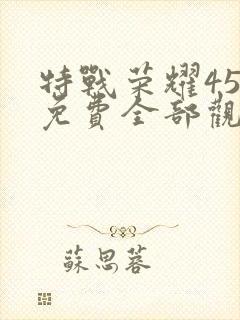 特戰荣耀45
免費全部觀
蘇思蓉